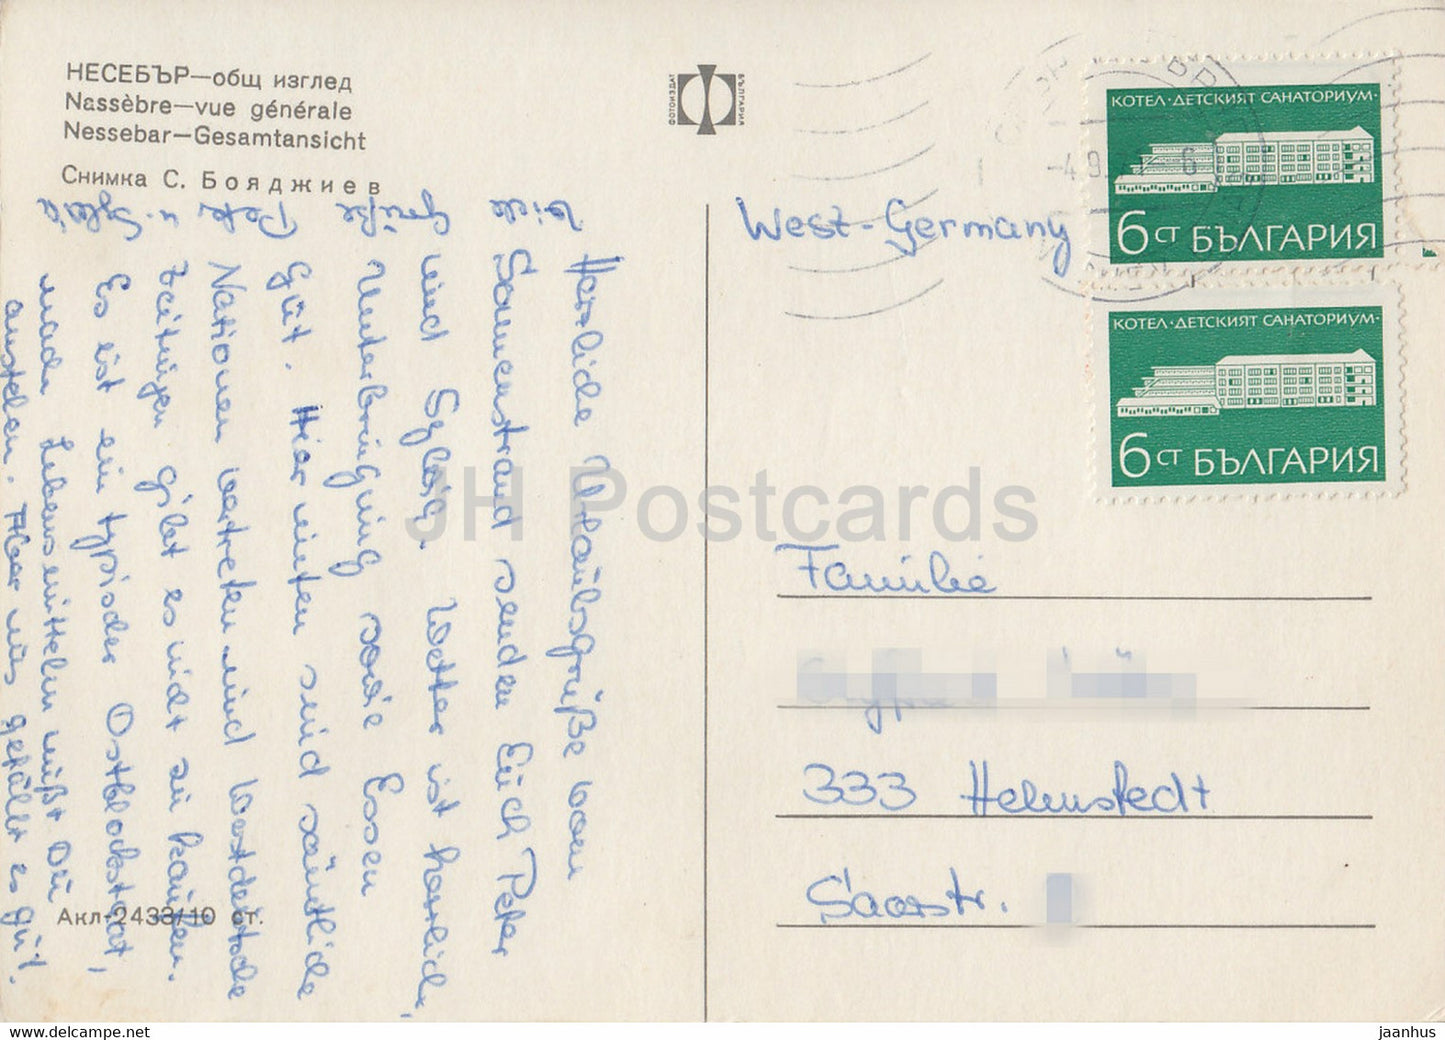 НЕСЕБЪР—общ изглед
Nassèbre—vue générale
Nessebar—Gesamtansicht
Снимка С. Бояджиев
ФОТОИЗДАТ
БЪЛГАРИЯ
Herzliche Urlaubsgrüße vom
Sonnenstrand senden Euch Peter
und Sylvia. Wetter ist herrlich,
Unterbringung sowie Essen
Gut. Hier unten sind sämtliche
Nationen vertreten und Westdeutsche
Zeitungen gibt es nicht zu kaufen.
Es ist ein typischer Ostblockstaat,
nach Lebensmitteln mußt Du
anstehen. Aber uns gefällt es gut.
Viele
Grüße
Peter
u. Sylvia
Акл-2433/10 ст.
West-Germany
КОТЕЛ·ДЕТСКИЯТ САНАТОРИУМ·
6 СТ БЪЛГАРИЯ
КОТЕЛ·ДЕТСКИЯТ САНАТОРИУМ·
6 СТ БЪЛГАРИЯ
Familie
333 Helmstedt
Saarstr.
JH Postcards
www.delcampe.net
jaanhus